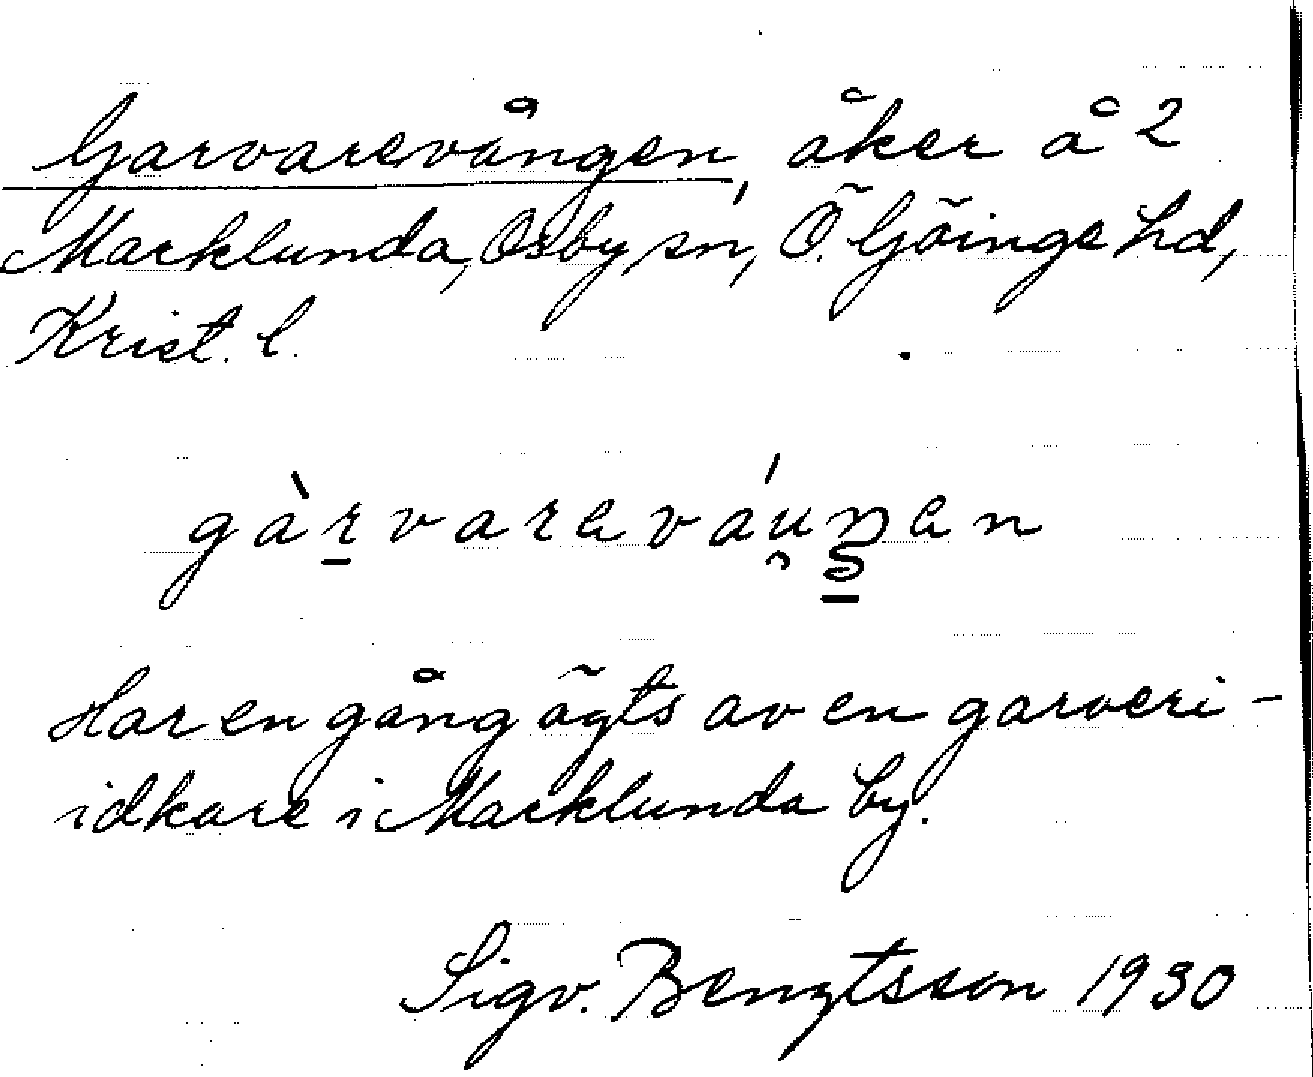 Garvarevången, åker å 2
Marklunda, Osby sn, Ö. Göinge hd,
Krist. l.
gàr̠vareváu̯ŋen
Har en gång ägts av en garveri-
idkare i Marklunda by.
Sigv. Bengtsson 1930